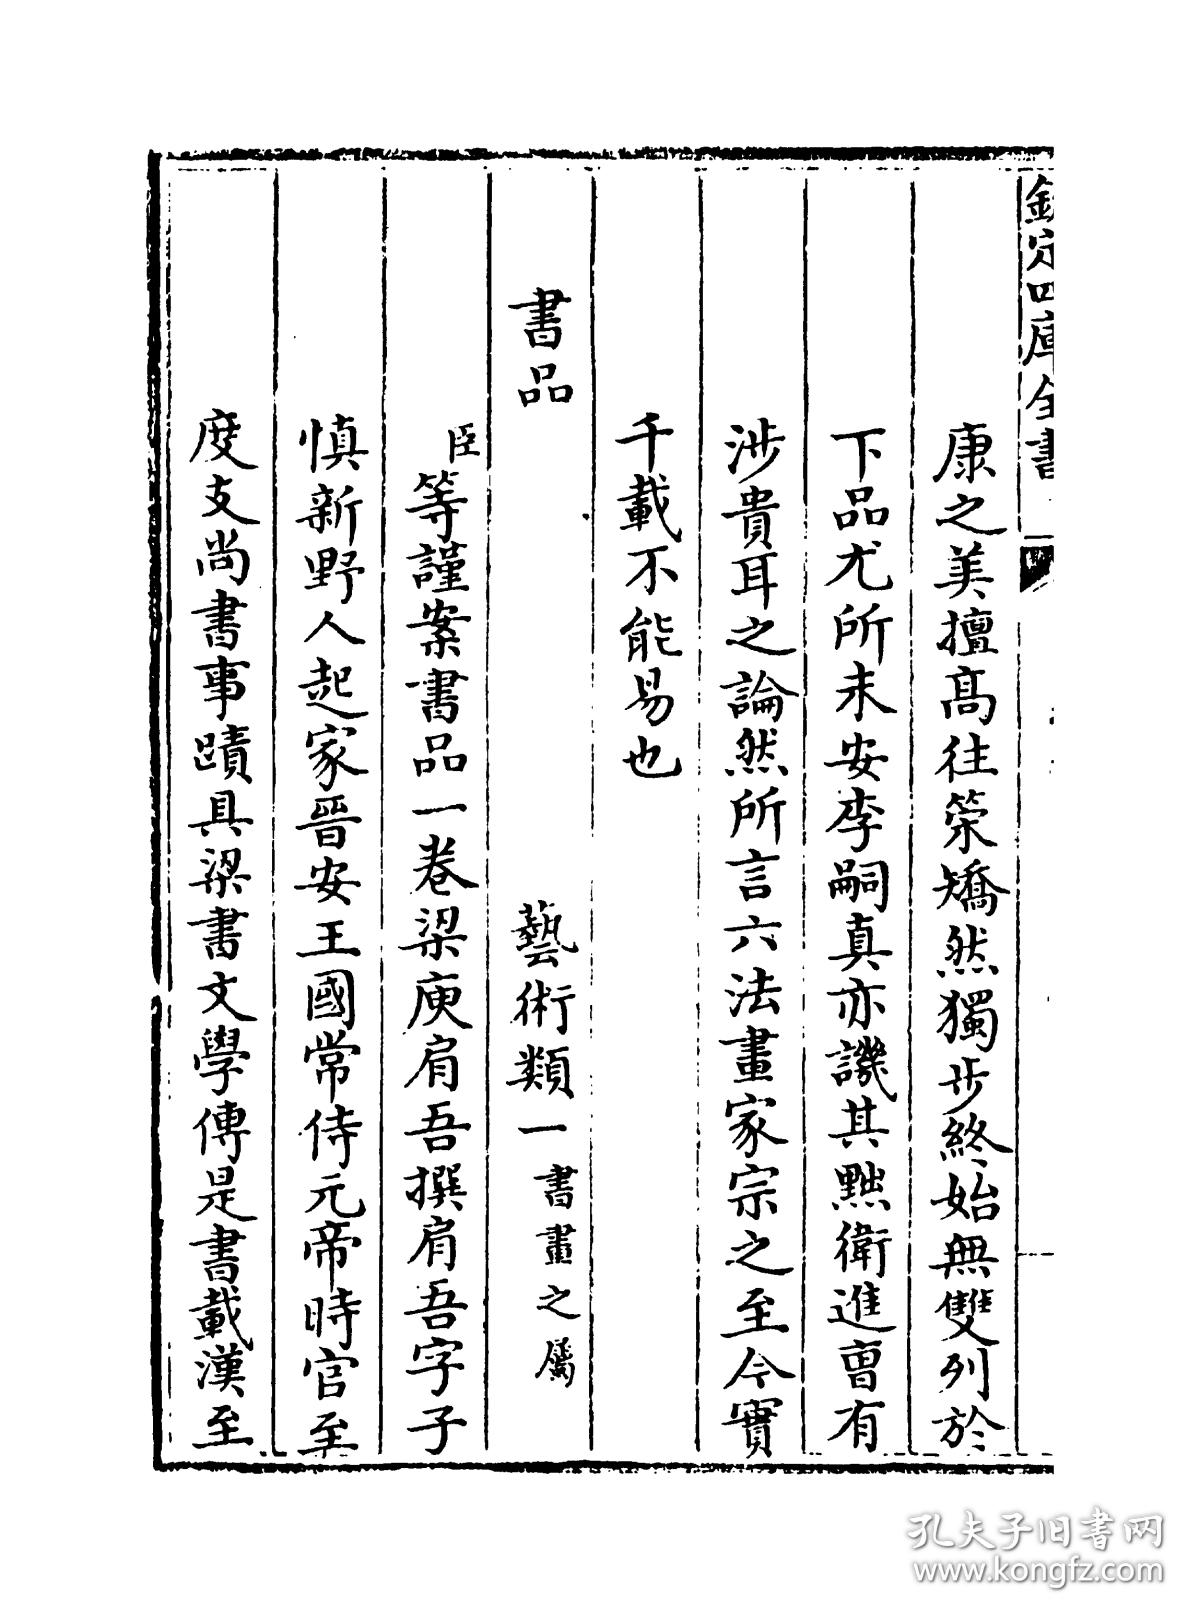 欽定四庫全書
康之美擅髙往䇿矯然獨步終始無雙列於
下品尤所未安李嗣真亦譏其黜衛進曹有
涉貴耳之論然所言六法畫家宗之至今實
千載不能易也
書品　藝術類一書畫之屬
臣等謹案書品一卷梁庾肩吾撰肩吾字子
慎新野人起家晉安王國常侍元帝時官至
度支尚書事蹟具梁書文學傳是書載漢至
孔夫子旧書网
www.kongfz.com